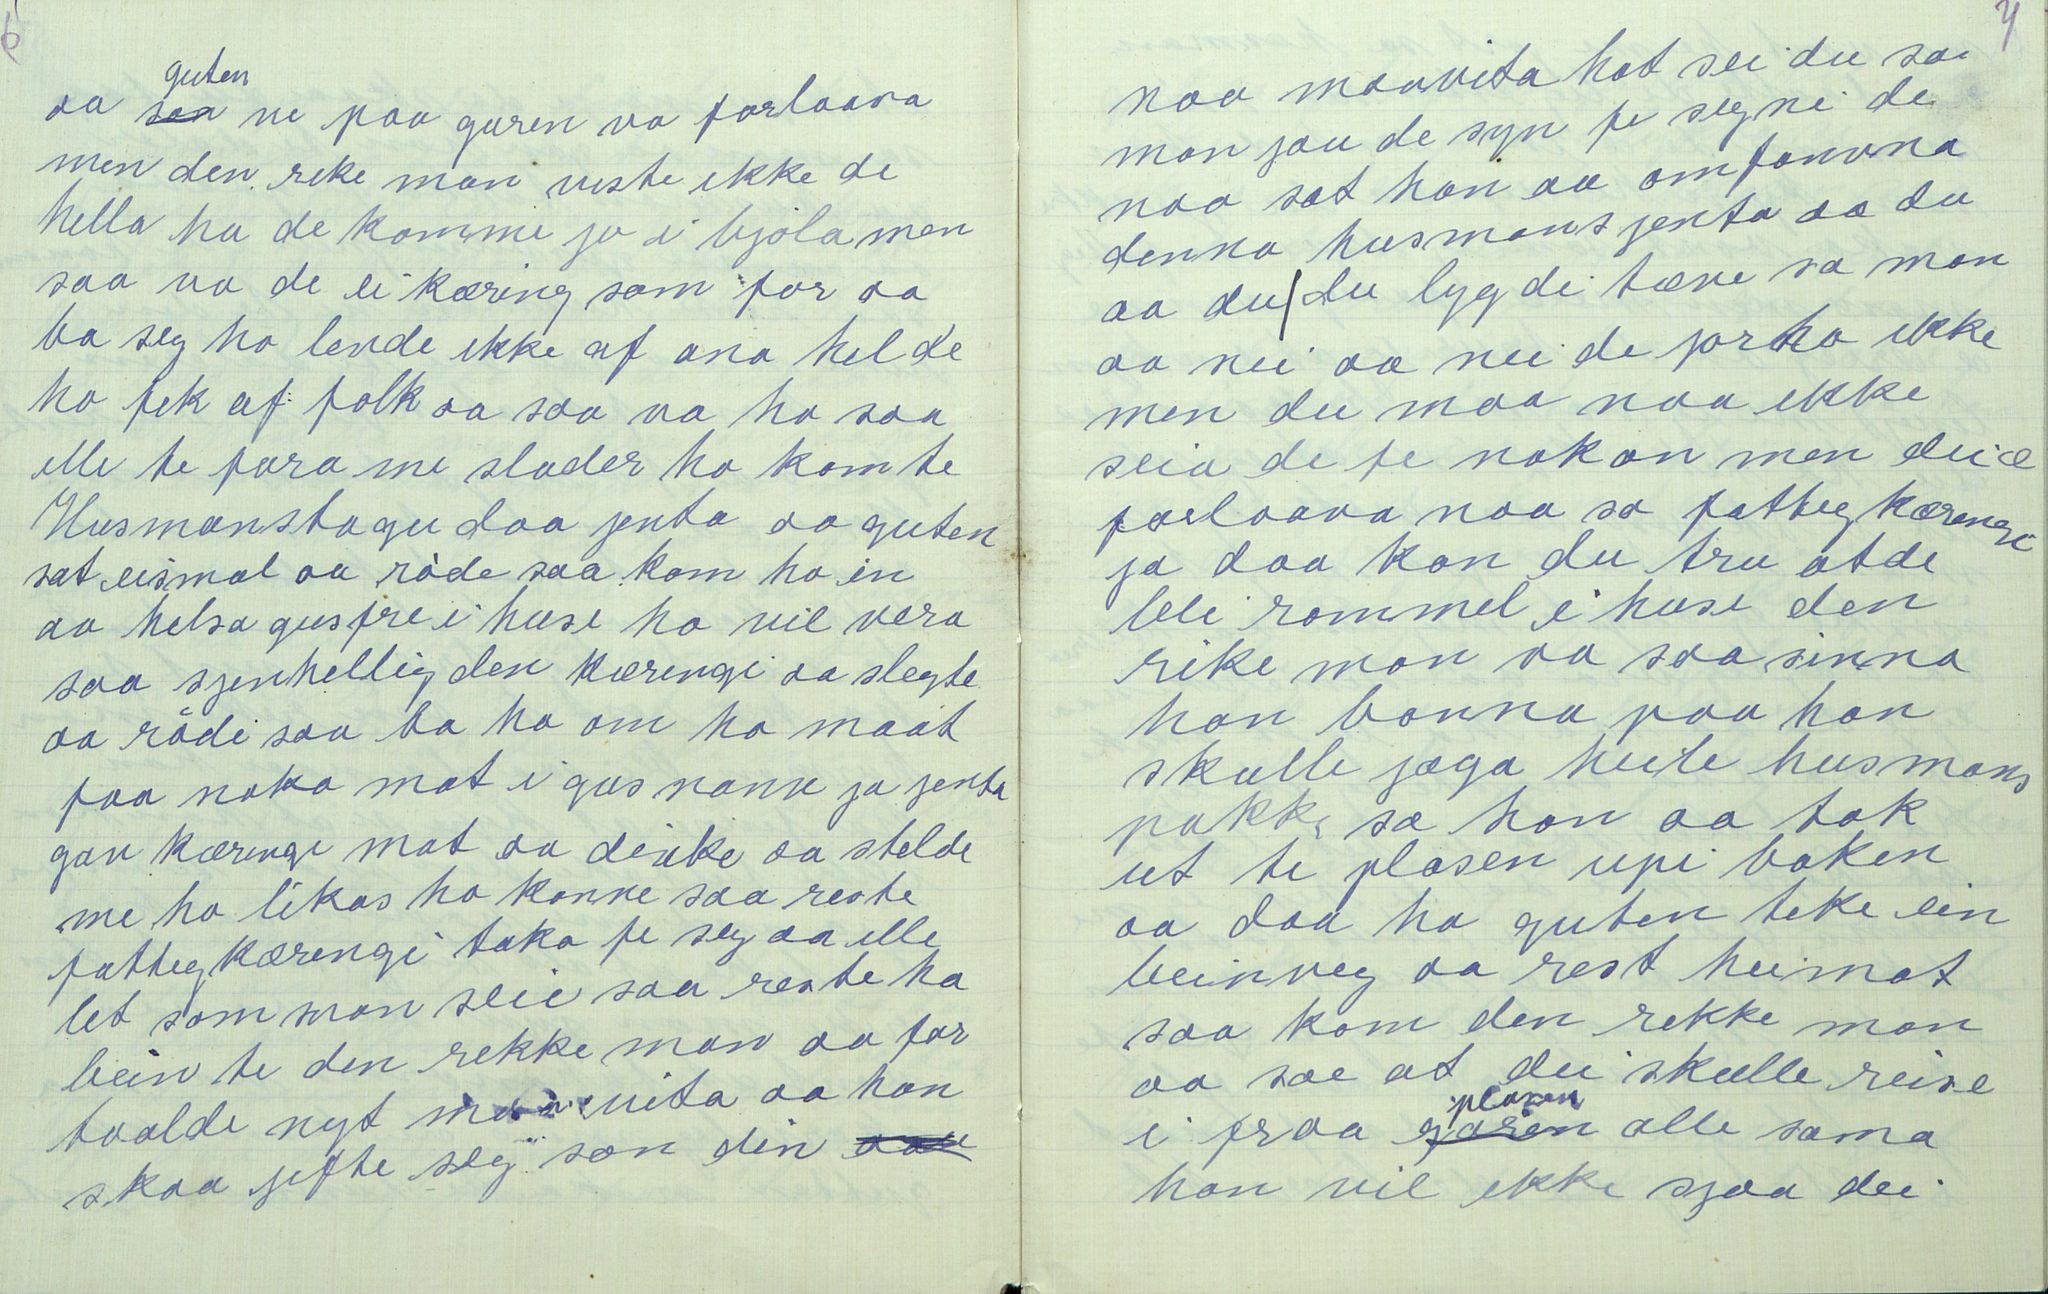 6
guten
aa saa ne paa garen va forlaava
men den reke man viste ikke de
hella ha de komme jo i bjøla men
saa va de ei kæring som for aa
ba seg ho levde ikke af ana hel de
ho fek af folk aa saa va ho saa
elle te fara me slader ho kom te
Husmanstagu daa jenta aa guten
sat eismal aa råde saa kom ho in
aa helsa gusfre i huse ho vil vera
saa sjenhellig den kærengi aa slegte
aa rådi saa ba ho om ho maat
faa noko mat i gus namn ja jenta
gav kærengi mat aa dirke aa stelde
me ho likas ho konne saa reste
fattegkærengi tako fe seg aa elle
let som man seie saa reste ho
bein te den rekke man aa for
taalde nyt maavita aa han
skaa jifte seg son din
7
naa maavita hat sei du sa
man jau de syn fe segni de
naa sat han aa omfamna
denna husmansjenta aa du
aa du/du lyg di tæve sa man
aa nei aa nei de jor ho ikke
men du maa naa ikke
seia de fe nokon men dei æ
forlaava naa sa fattegkærengi
ja daa kan du tru at de
blei rommel i huse den
rike man va saa sinna
han banna paa han
skulle jaga heile husmans
pakke sa han aa tok
ut te plasen upi baken
aa daa ha guten teke ein
beinveg aa rest heimat
saa kom den rekke man
aa sae at dei skulle reise
plasen
i fraa garen alle sama
han vil ikke sjaa dei